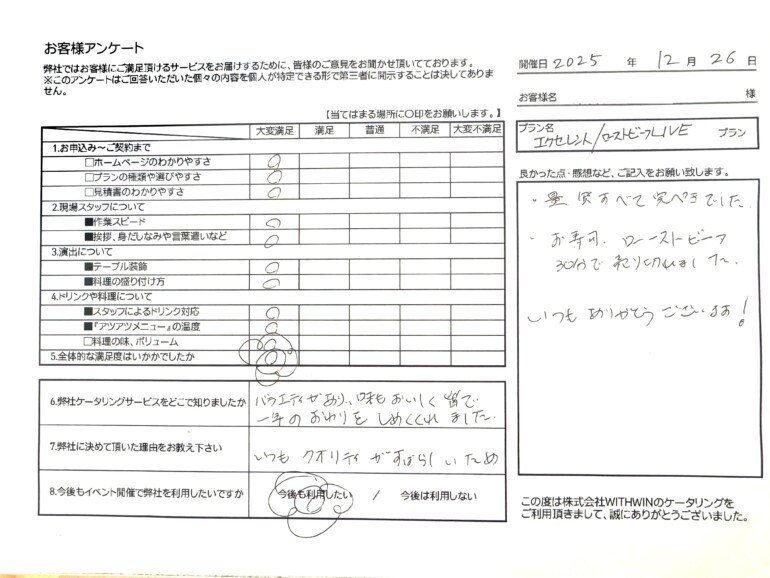 お客様アンケート
弊社ではお客様にご満足頂けるサービスをお届けするために、皆様のご意見をお聞かせ頂いております。
※このアンケートはご回答いただいた個々の内容を個人が特定できる形で第三者に開示することは決してありません。
【当てはまる場所に〇印をお願いします。】
大変満足 満足 普通 不満足 大変不満足
1.お申込み～ご契約まで
□ホームページのわかりやすさ ○
□プランの種類や選びやすさ ○
□見積書のわかりやすさ ○
2.現場スタッフについて
■作業スピード ○
■挨拶、身だしなみや言葉遣いなど ○
3.演出について
■テーブル装飾 ○
■料理の盛り付け方 ○
4.ドリンクや料理について
■スタッフによるドリンク対応 ○
■『アツアツメニュー』の温度 ○
□料理の味、ボリューム ○
5.全体的な満足度はいかがでしたか ○
6.弊社ケータリングサービスをどこで知りましたか
バラエティがあり、味もおいしく皆で
一年のおわりをしめくくれました。
7.弊社に決めて頂いた理由をお教え下さい
いつもクオリティがすばらしいため
8.今後もイベント開催で弊社を利用したいですか
今後も利用したい / 今後は利用しない
開催日 2025 年 12 月 26 日
お客様名 様
プラン名
エクセレント/ローストビーフLIVE プラン
良かった点・感想など、ご記入をお願い致します。
・量 質すべて完ぺきでした。
・お寿司、ローストビーフ
30分で売り切れました。
いつもありがとうございます!
この度は株式会社WITHWINのケータリングを
ご利用頂きまして、誠にありがとうございました。